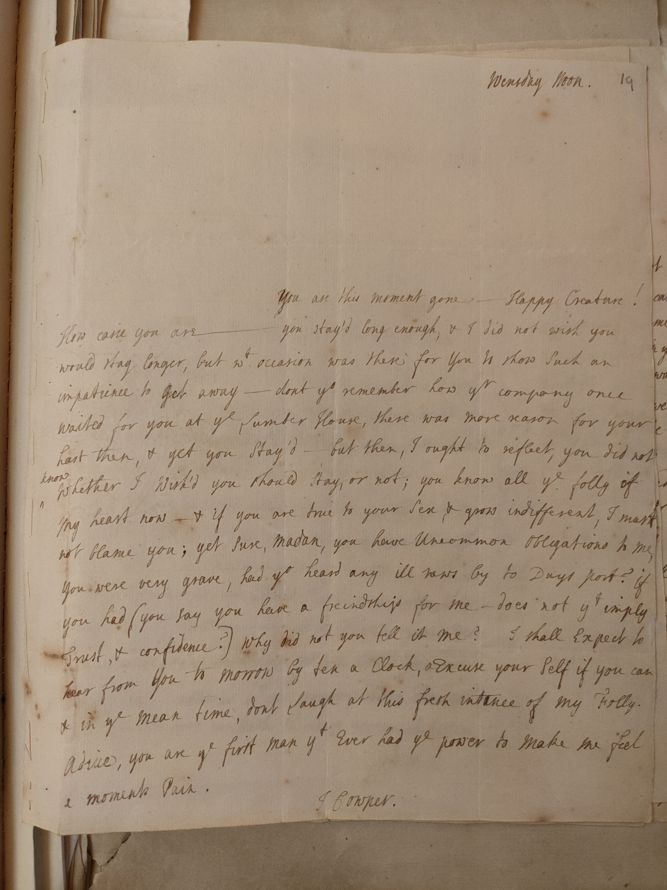 Wensday Noon. 19
You are this moment gone — Happy Creature!
How easie you are — you stay'd long enough, & I did not wish you
would stay longer, but wt occasion was there for You to show such an
impatience to get away — dont yo remember how yr company once
waited for you at ye Lumber House, there was more reason for your
hast then, & yet you Stay'd — but then, I ought to reflect, you did not
know
^
Whether I Wish'd you should stay, or not; you know all ye folly of
my heart now — & if you are true to your Sex, & grow indifferent, I must
not blame you; yet sure, Madam, you have Uncommon Obligations to me,
you were very grave, had yo heard any ill news by to Days post? if
you had (you say you have a freindship for me — does not yt imply
Trust, & confidence?) why did not you tell it me? I shall Expect to
hear from You to morrow by ten a Clock, Excuse your Self if you can
& in ye mean time, dont Laugh at this fresh intance of my Folly.
Adieu, you are ye first man yt Ever had ye power to make me feel
a moments Pain.
J Cowper.